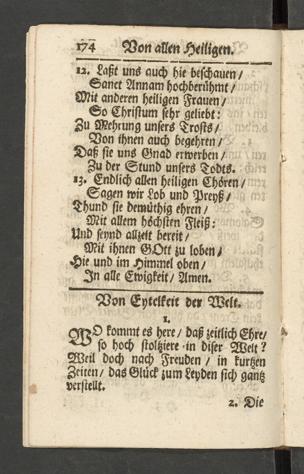 174 Von allen Heiligen.
12. Laßt uns auch hie beschauen /
Sanct Annam hochberühmt /
Mit anderen heiligen Frauen /
So Christum sehr geliebt:
Zu Mehrung unsers Trosts /
Von ihnen auch begehren /
Daß sie uns Gnad erwerben /
Zu der Stund unsers Todts.
13. Endlich allen heiligen Chören /
Sagen wir Lob und Preyß /
Thund sie demüthig ehren /
Mit allem höchsten Fleiß:
Und seynd allzeit bereit /
Mit ihnen GOtt zu loben /
Hie und im Himmel oben /
In alle Ewigkeit / Amen.
Von Eytelkeit der Welt.
1.
WO kommt es here / daß zeitlich Ehre /
so hoch stoltziere in diser Welt?
Weil doch nach Freuden / in kurtzen
Zeiten / das Glück zum Leyden sich gantz
verstellt.
2. Die